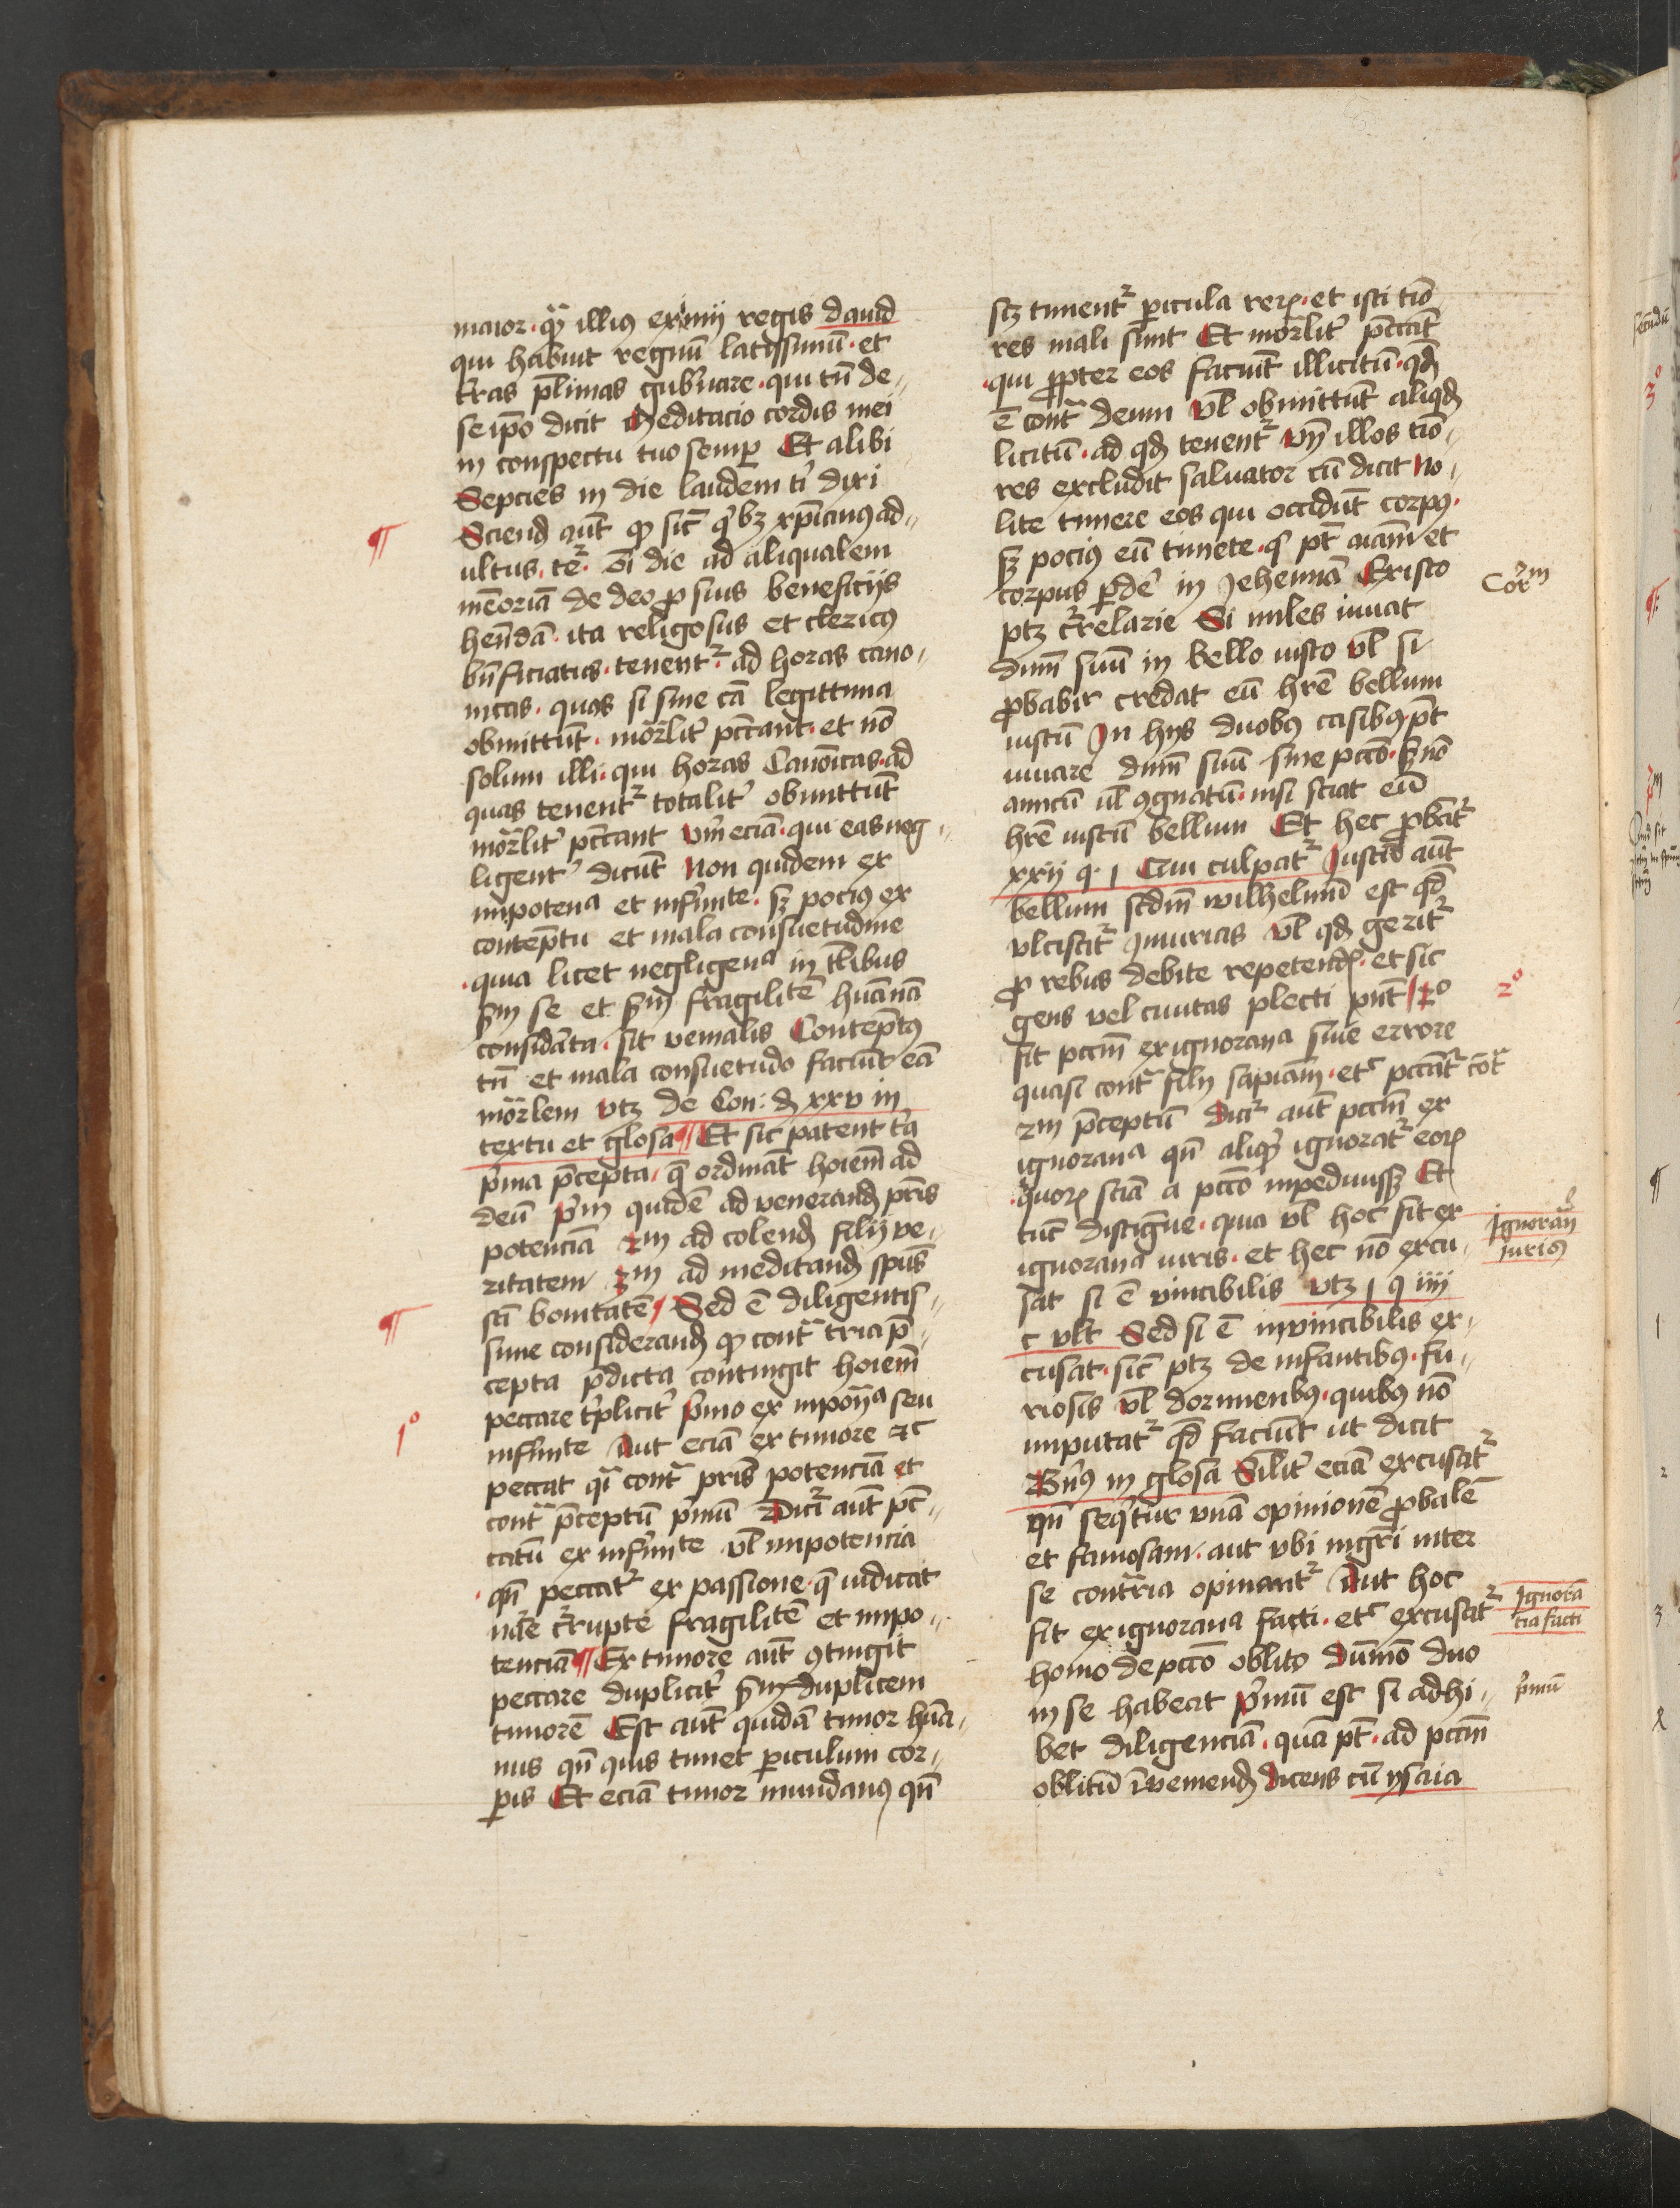 maior · qͣ illiꝯ eximij regis dauid
qui habuit regnū latissimū · et
t̄ras pl̄imas gub̾nare · qui tn̄ de
seip̄o dicit Meditacio cordis mei
in conspectu tuo semꝑ Et alibi
Sepcies in die laudem ti̾ dixi
Sciend̄ aūt ꝙ sic̄ qͥlibꝫ xp̄ianꝯ ad
ultus · teꝛ̄ · oī die ad aliqualem
mēoriā de deo ꝓ suis beneficijs
hēndā · ita religiosus et clericꝯ
bn̄ficiatus · tenent̾ ad horas cano
nicas · quas si sine cā legittima
obmittūt · mōrlit̾ pc̄cant · et nō
solum illi · qui horas Canōicas · ad
quas tenent̾ totalit̾ obmittūt
mōrlit̾ pc̄cant Vm̄ eciā · qui eas neg
ligent̾ dicūt Non quidem ex
impotenꝰa et infirmite · sꝫ pociꝯ ex
contēptu et mala consuetudine
· quia licet negligenꝰa in tl̄ibus
sm̄ se et sm̄ fragilitē hūanā
considāta · sit venialis Contēptꝯ
tn̄ et mala consuetudo faciūt eā
mōrlem vtꝫ de Con: d̄ xxv in
textu et glosa ¶ Et sic patent tͥa
p̾ma p̄cepta · q̄ ordināt hoīem ad
deū p̾m quidē ad venerand̄ pr̄is
potenciā 2m ad colend̄ filij ve
ritatem 3m ad meditand̄ sp̄us
sc̄i bonitatē / Sed ē diligentis
sime considerand̄ ꝙ contͣ tria p̄
cepta p̄dicta contingit hoīem
peccare tͥplicit̾ p̾mo ex impoꝰna seu
infirmite Aut eciā ex timore ⁊c
peccat qi̾ contͣ pr̄is potenciā et
contͣ p̄ceptū p̾mū Dicr̾ aūt pc̄
catū ex infirmite vl̄ impotencia
· qn̄ peccat̾ ex passione · q̄ iudicat
nāe c̾rupte fragilitē et impo
tenciā ¶ Ex timore aūt ꝯtingit
peccare duplicit̾ sm̄ duplicem
timorē Est aūt quidā timor hūa
nus qn̄ quis timet ꝑiculum cor
ꝑis Et eciā timor mundanꝯ qn̄
1°
scꝫ timent̾ ꝑicula reꝝ · et isti tīo
res mali sunt Et mōrlit̾ pc̄cāt
· qui ꝓpter eos faciūt illicitū · qd̄
ē contͣ deum Vl̄ obmittūt aliqd̄
licitū · ad qd̄ tenent̾ Vn̄ illos tīo
res excludit saluator cū dicit No
lite timere eos qui occidūt corpꝯ ·
sꝫ pociꝯ eū timete · qͥ pt̄ aīam et
corpus ꝑde̾ in Jehennā Ex isto
ptꝫ c̾relarie Si miles iuuat
dnm̄ suū in bello iusto vl̄ si
ꝓbabir̄ credat eū hr̄e bellum
iustū In hijs duobꝯ casibꝯ pt̄
iuuare dnm̄ suū sine pc̄cō · sꝫ nō
amicū ul̄ ꝯgnatū · nisi sciat eū
hr̄e iustū bellum Et hec ꝓbat̾
xxij q · 1 Cui culpat̾ Justū aūt
bellum scdm̄ wilhelmū est qd̄
vlciscit̾ iniurias Vl̄ qd̄ gerit̾
ꝓ rebus debite repetend̄ · et sic
gens vel ciuitas plecti pn̄t / 2°
fit pccm̄ ex ignorana siue errore
quasi contͣ filij sapiām · et̾ pccāt̾ cōtͣ
2m p̄ceptū Dicr̾ aūt pccm̄ ex
ignorana qn̄ aliqͥs ignorat̾ eoꝝ
· quoꝝ sciā a pc̄cō impediuissꝫ Et
tūc distīgue · quia vl̄ hoc sit ex
ignorana iuris · et hec nō excu
sat si ē vincibilis vtꝫ 1 q iiij
c vlt Sed si ē invincibilis ex
cusat · sic̄ ptꝫ de infantibꝯ · fu
riosis vl̄ dormientibꝯ · quibꝯ nō
imputat̾ qd̄ faciūt ut dicit
Bn̄ꝯ in glosa Sil̄it̾ eciā excusat̾
qn̄ seqͥtur unā opinionē ꝓbalē
et famosam · aut vbi mgr̄i inter
se contͣria opinant̾ Aut hoc
fit ex ignorana facti · et̾ excusat̾
homo de pc̄cō oblito Dūmō duo
in se habeat p̾mū est si adhi
bet diligenciā · quā pt̄ · ad pccm̄
oblitū īveniend̄ dicens cū ysaia
Cor̾m
2°
Ignorān
iuris
Ignorā
tia facti
p̾mū